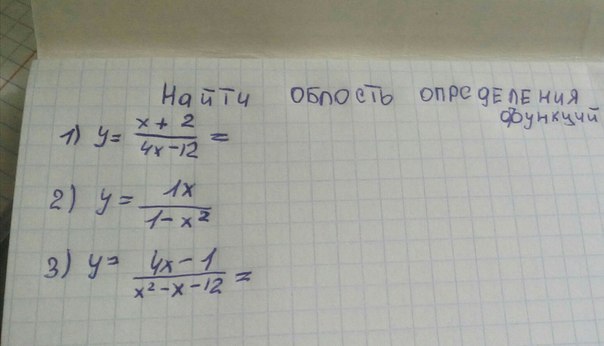 Найти облость определения
функций
1) y = x + 2 / 4x - 12 =
2) y = 1x / 1 - x²
3) y = 4x - 1 / x² - x - 12 =